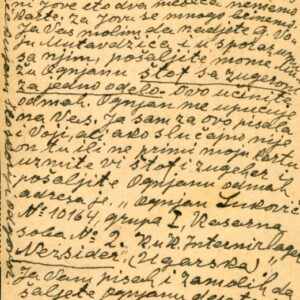 ni Jove eto dva meseca nemamo
karti, za Jovu se mnogo brinemo,
Ja Vas molim da nadjete G. Vo-
ju Mutavdzića i u sporazumu
sa njim, pošaljite mome
Ognjanu štof sa zugerom
za jedno odelo. Ovo učinite
odmah. Ognjan me upućuje
na Vas. Ja sam za ovo pisala
i Voji, ali ako slučajno nije
on tu ili ne primi moju kartu
uzmite vi štof i zugeher i
pošaljite Ognjanu odmah
adresa je, "Ognjan Luković
№ 10164, grupa I Reserna
soba № 2. K.u.K. Internirlager
Nežsider" (Ugarska)
Ja Vam pisah i zamolih da
šaljete Ognjanu